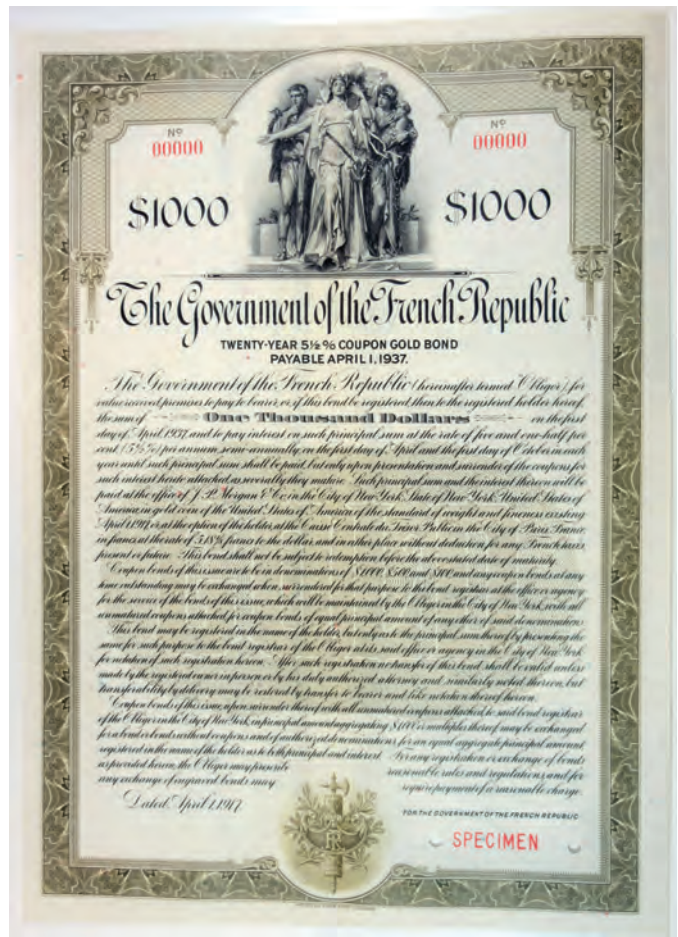 Nº
00000
Nº
00000
$1000
$1000
The Government of the French Republic
TWENTY-YEAR 5½% COUPON GOLD BOND
PAYABLE APRIL 1, 1937.
The Government of the French Republic (hereinafter termed "Obligor"), for
value received promises to pay to bearer, or, if this bond be registered, then to the registered holder hereof,
the sum of One Thousand Dollars on the first
day of April, 1937, and to pay interest on such principal sum at the rate of five and one-half per
cent (5½%) per annum, semi-annually, on the first day of April and the first day of October in each
year until such principal sum shall be paid, but only upon presentation and surrender of the coupons for
such interest hereto attached as severally they mature. Such principal sum and the interest thereon will be
paid at the office of J. P. Morgan & Co. in the City of New York, State of New York, United States of
America, in gold coin of the United States of America of the standard of weight and fineness existing
April 1, 1917, or, at the option of the holder, at the Caisse Centrale du Trésor Public in the City of Paris, France,
in francs at the rate of francs to the dollar, and in either place without deduction for any French taxes
present or future. This bond shall not be subject to redemption before the above stated date of maturity.
Coupon bonds of this issue are to be in denominations of $1000, $500 and $100, and any coupon bonds at any
time outstanding may be exchanged when surrendered for that purpose to the bond registrar at the office or agency
for the service of the bonds of this issue, which will be maintained by the Obligor in the City of New York, with all
unmatured coupons attached, for coupon bonds of equal principal amount of any other of said denominations.
This bond may be registered in the name of the holder, but only as to the principal sum thereof by presenting the
same for such purpose to the bond registrar of the Obligor at its said office or agency in the City of New York
for notation of such registration hereon. After such registration no transfer of this bond shall be valid unless
made by the registered owner in person or by his duly authorized attorney and similarly noted thereon, but
transferability by delivery may be restored by transfer to bearer and like notation thereof hereon.
Coupon bonds of this issue, upon surrender thereof with all unmatured coupons attached, to said bond registrar
of the Obligor in the City of New York, in principal amount aggregating $1000 or multiples thereof may be exchanged
for a bond or bonds without coupons and of authorized denominations for an equal aggregate principal amount
registered in the name of the holder as to both principal and interest. For any registration or exchange of bonds
as provided herein, the Obligor may prescribe reasonable rules and regulations, and for
any exchange of engraved bonds may require payment of a reasonable charge.
Dated, April 1, 1917.
FOR THE GOVERNMENT OF THE FRENCH REPUBLIC
SPECIMEN
RF